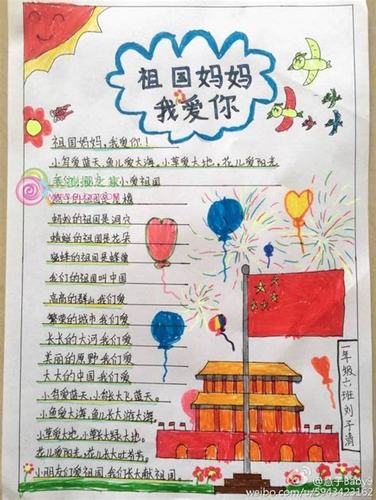 祖国妈妈
我爱你
祖国妈妈,我爱你!
小鸟爱蓝天,鱼儿爱大海,小草爱大地,花儿爱阳光
小爱祖国
蚂蚁的祖国是洞穴
蝴蝶的祖国是花朵
蜜蜂的祖国是蜂巢
我们的祖国叫中国
高高的群山我们爱
繁荣的城市我们爱
长长的大河我们爱
美丽的原野我们爱
大大的中国我们爱
小鸟爱蓝天,小鸟长大飞蓝天。
小鱼爱大海,鱼儿长大游大海,
小草爱大地,小草长大绿大地。
花儿爱阳光,花儿长大吐芬芳
小朋友们爱祖国,我们长大献祖国。
一年级六班刘子漪
@意子Baby9
weibo.com/u/5943423162